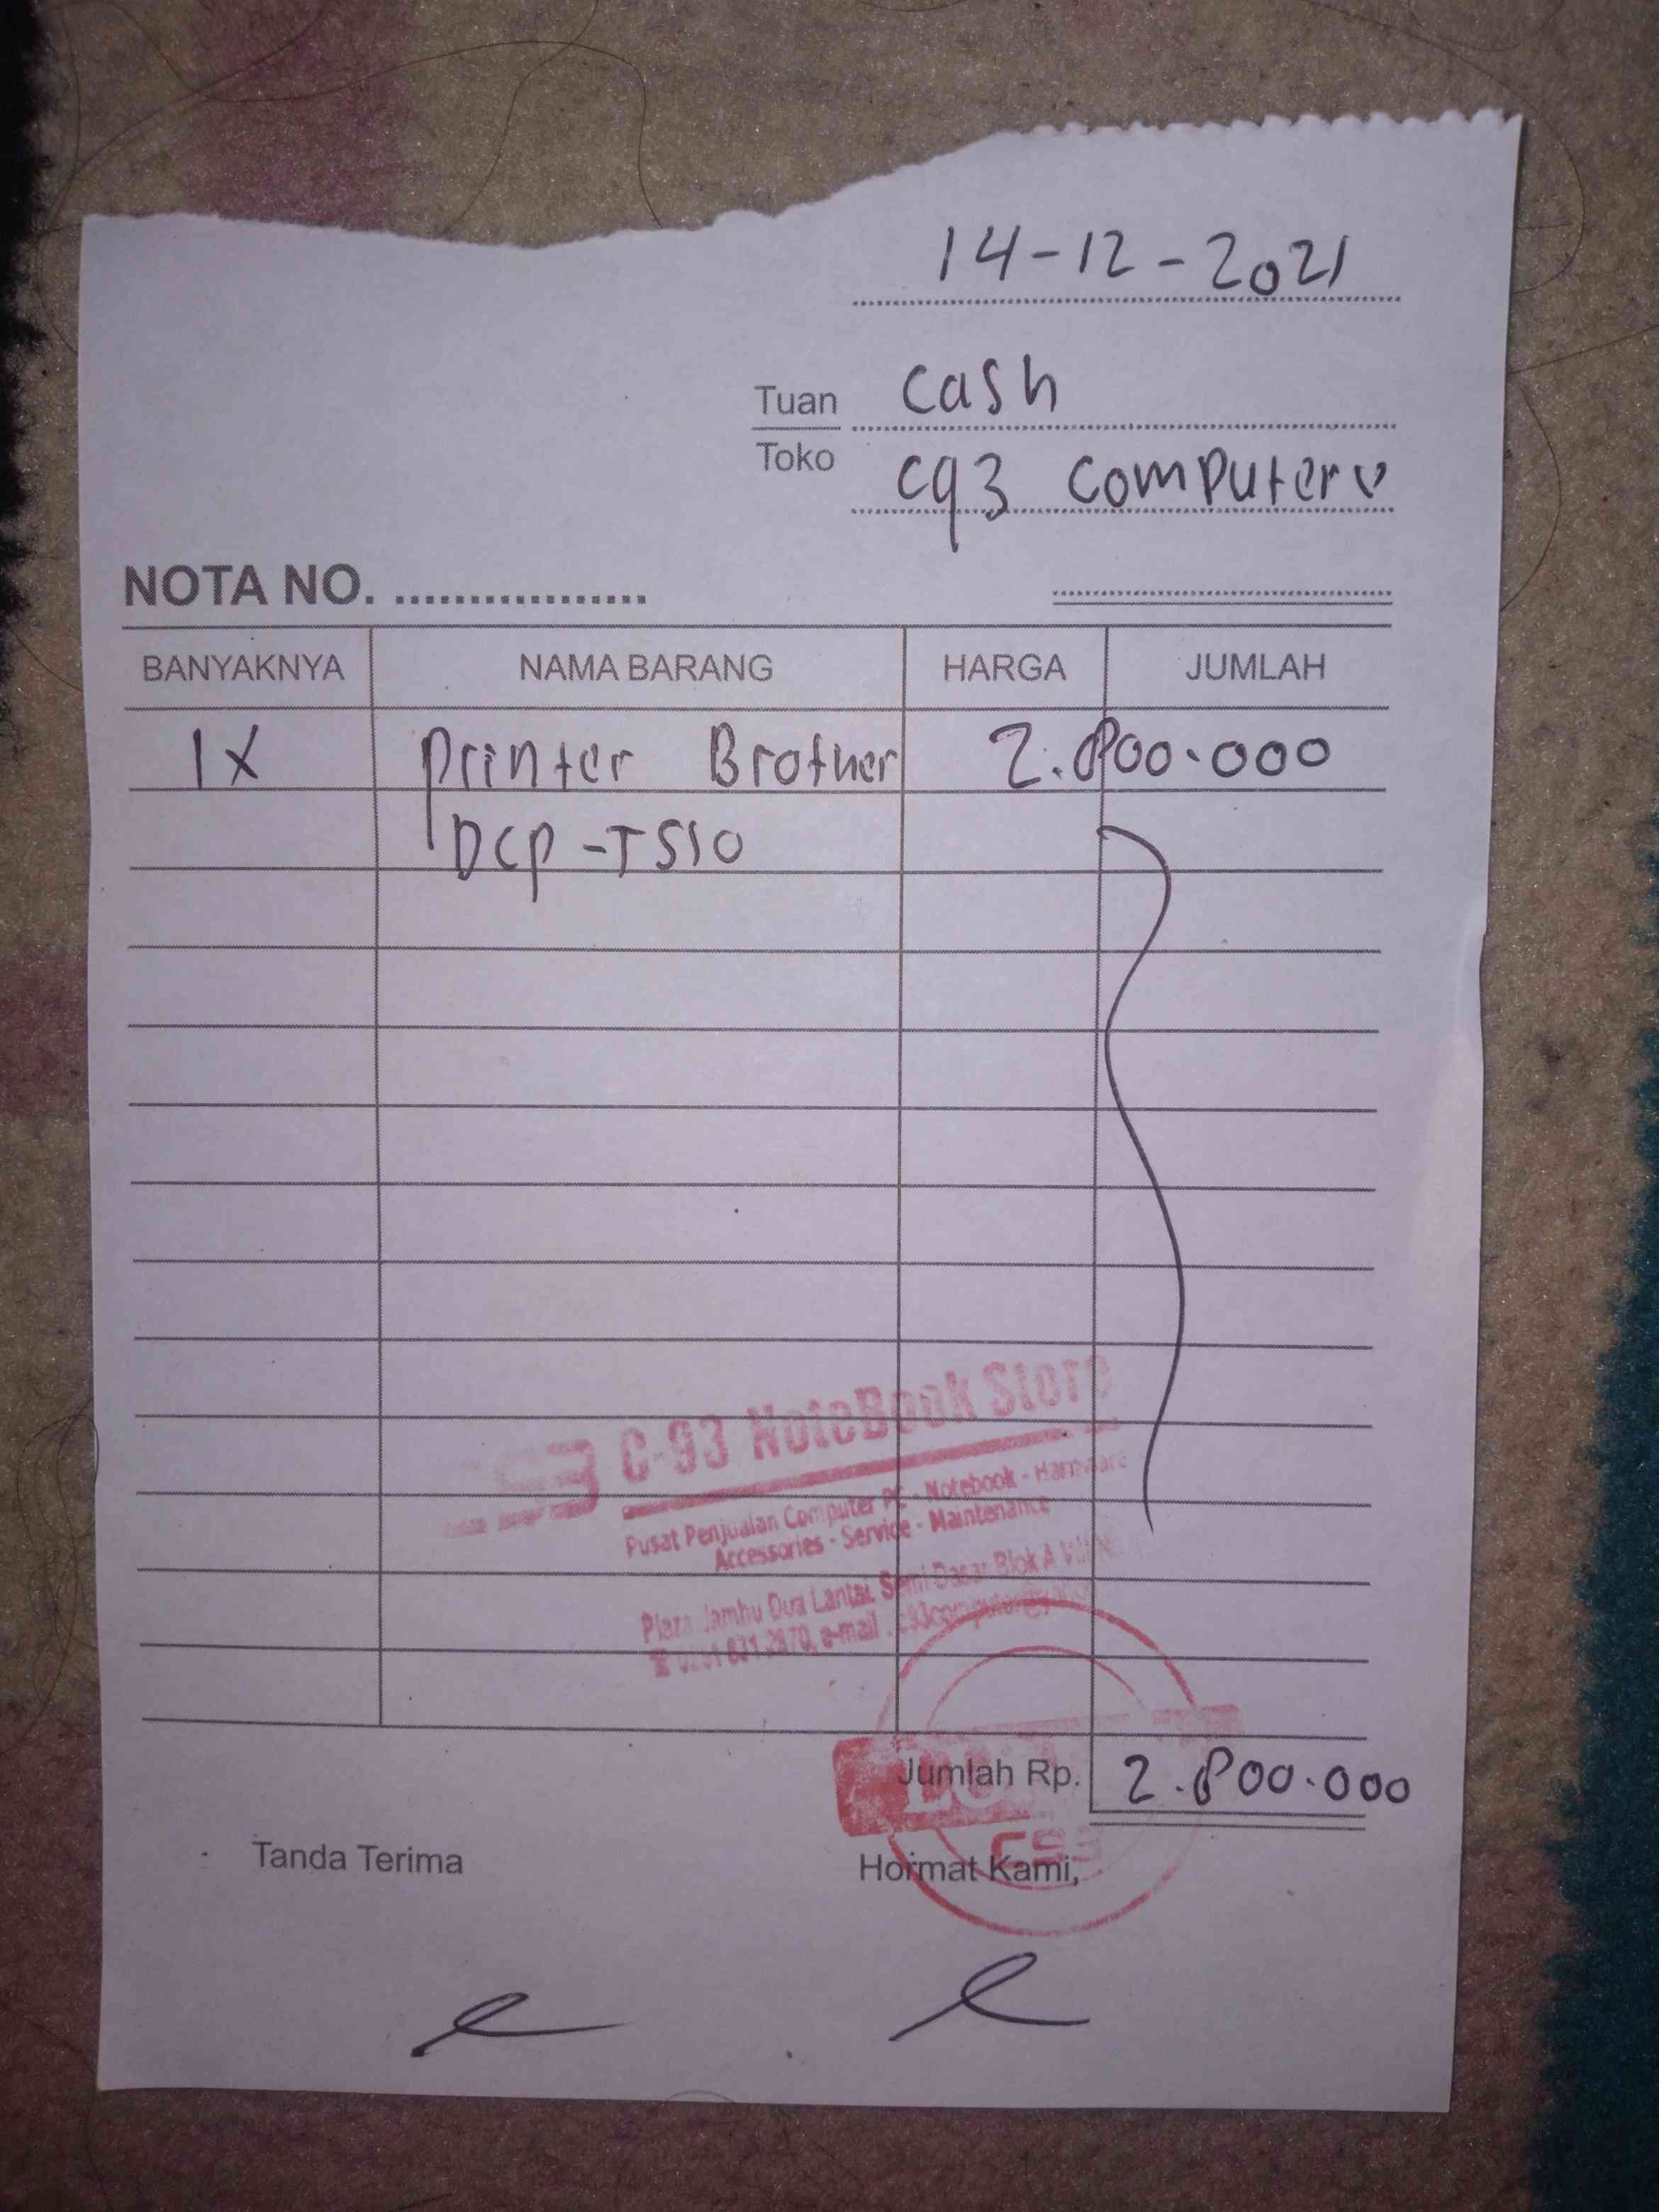 14-12-2021
Tuan cash
Toko c93 computer
NOTA NO. .................
BANYAKNYA NAMA BARANG HARGA JUMLAH
1x printer Brother 2.800.000
DCP-T510
C-93 NoteBook Store
Pusat Penjualan Computer PC - Notebook - Hardware
Accessories - Service - Maintenance
Plaza Jambu Dua Lantai Semi Dasar Blok A
e-mail
Jumlah Rp. 2.800.000
C93
Tanda Terima Hormat Kami,